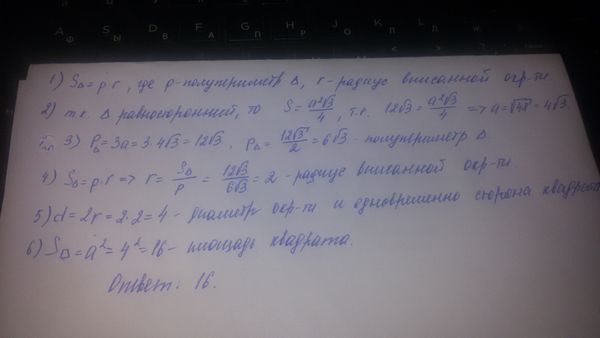 Ф Ы В А П Р О
A S D F G H J
1) S△ = p·r, где p-полупериметр △, r-радиус вписанной окр-ти.
2) т.к. △ равносторонний, то S = a²√3/4, т.е. 12√3 = a²√3/4 => a = √48 = 4√3.
3) P△ = 3a = 3·4√3 = 12√3, p△ = 12√3/2 = 6√3 - полупериметр △
4) S△ = p·r => r = S△/p = 12√3/6√3 = 2 - радиус вписанной окр-ти.
5) d = 2r = 2·2 = 4 - диаметр окр-ти и одновременно сторона квадрата
6) S□ = a² = 4² = 16 - площадь квадрата.
Ответ: 16.